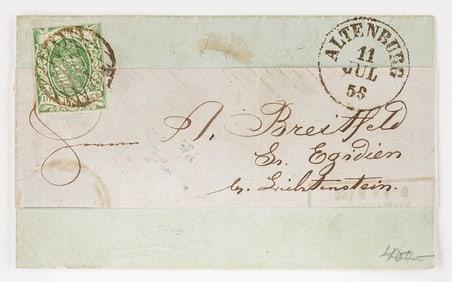 ALTENBURG
11
JUL
58
A. Breitfeld
St. Egidien
by Lichtenstein.